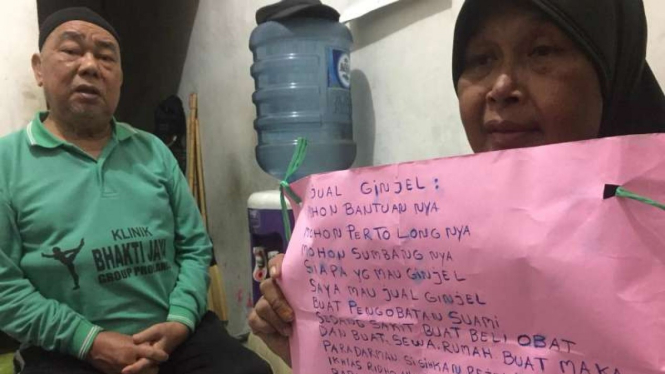 KLINIK
BHAKTI
GROUP
JUAL GINJEL :
MOHON BANTUAN NYA
MOHON PERTOLONGNYA
MOHON SUMBANG NYA
SIAPA YG MAU GINJEL
SAYA MAU JUAL GINJEL
BUAT PENGOBATAN SUAMI
SEDANG SAKIT. BUAT BELI OBAT
DAN BUAT. SEWA. RUMAH BUAT MAKA
PARA DARMAN SISIHKAN
IKHLAS